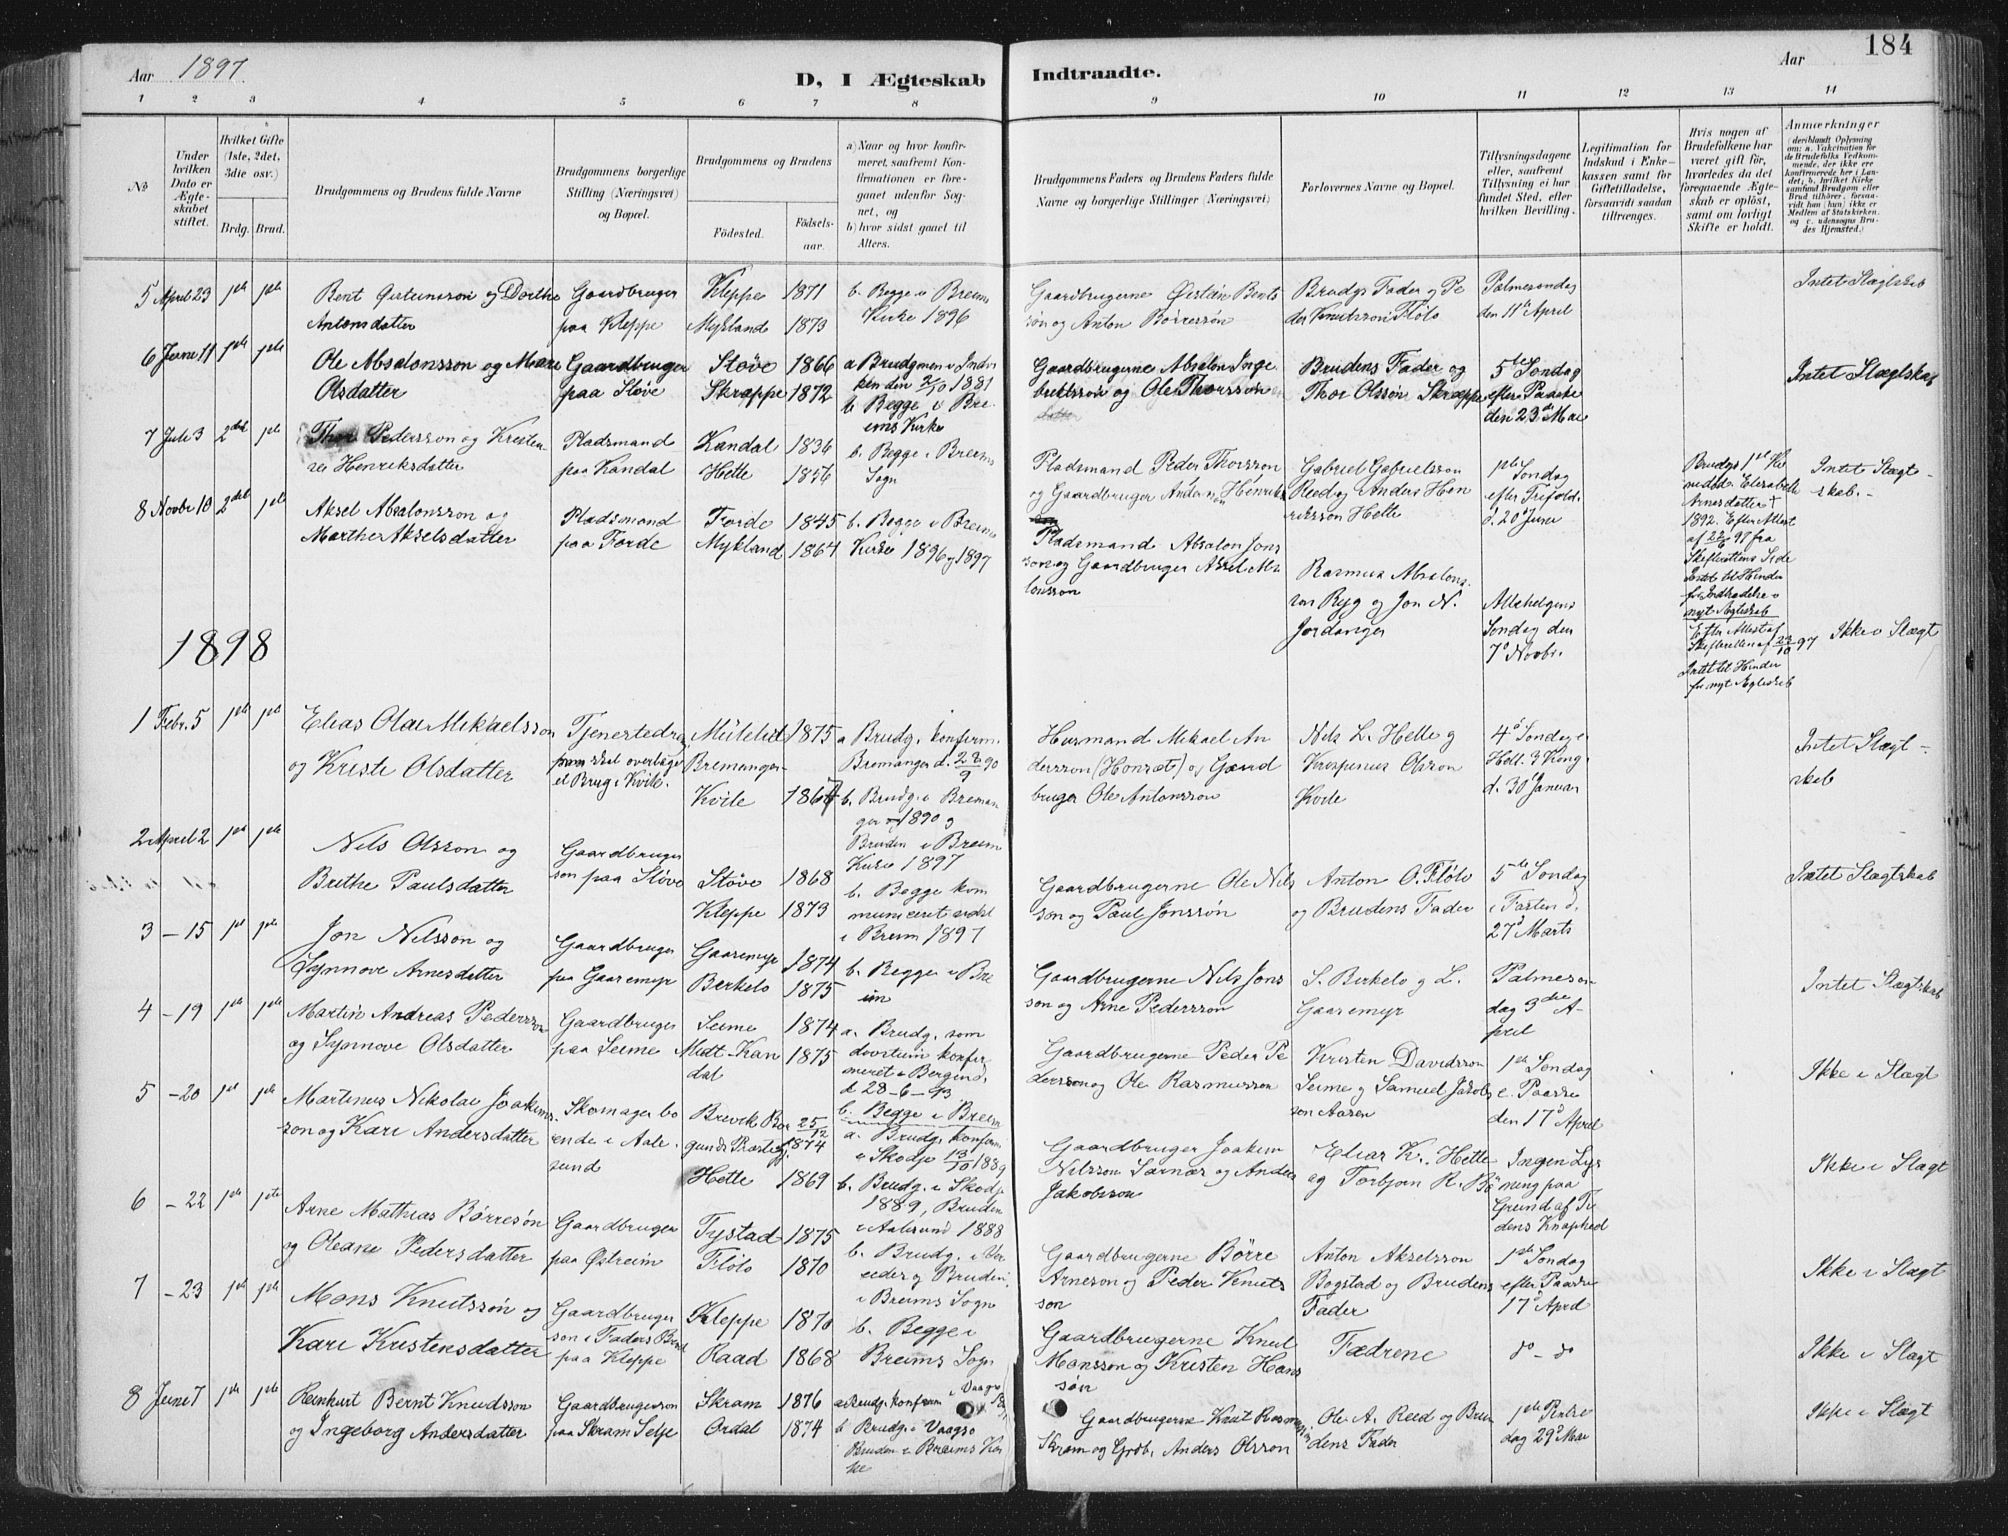 184
Aar 1897.
D, I Ægteskab Indtraadte.
Aar
1 2 3 4 5 6 7 8 9 10 11 12 13 14
No
Under hvilken Dato er Ægteskabet stiftet.
Hvilket Gifte (1ste, 2det, 3die osv.)
Brdg. Brud.
Brudgommens og Brudens fulde Navne
Brudgommens borgerlige Stilling (Næringsvei) og Bopæl.
Brudgommens og Brudens
Fødested. Fødselsaar.
a) Naar og hvor konfirmeret, saafremt Konfirmationen er foregaaet udenfor Sognet, og
b) hvor sidst gaaet til Alters.
Brudgommens Faders og Brudens Faders fulde Navne og borgerlige Stillinger (Næringsvei)
Forlovernes Navne og Bopæl.
Tillysningsdagene eller, saafremt Tillysning ei har fundet Sted, efter hvilken Bevilling.
Legitimation for Indskud i Enkekassen samt for Giftetilladelse, forsaavidt saadan tiltrænges.
Hvis nogen af Brudefolkene har været gift før, hvorledes da det foregaaende Ægteskab er opløst, samt om lovligt Skifte er holdt.
Anmærkninger (deriblandt Oplysning om: a. Vakcination for de Brudefolks Vedkommende, der ikke ere konfirmerede her i Landet; b. hvilket Kirkesamfund Brudgom eller Brud tilhører, forsaavidt han (hun) ikke er Medlem af Statskirken, og c. udensogns Brudes Hjemsted.)
5 April 23 1ste 1ste
Bent Øistensson og Dorthe
Antonsdatter
Gaardbruger
paa Kleppe
Kleppe 1871
Mykland 1873
b. Begge i Breims
Kirke 1896
Gaardbrugerne Øistein Bents
søn og Anton Børresøn
Brudgs Fader og Pe
der Knutssøn Fløto
Palmesøndag
den 11te April
Intet Slægtskab
6 Juni 11 1ste 1ste
Ole Absalonsson og Marie
Olsdatter
Gaardbruger
paa Støve
Støve 1866
Skræppe 1872
a Brudgmen i Indvi
ken den 2/10 1881
b Begge i Bre
ims Kirke
Gaardbrugerne Absalon Inge
briktssøn og Ole Thorssøn
Brudens Fader og
Thor Olssøn Skræppe
5te Søndag
efter Paaske
den 23de Mai
Intet Slægtskab
7 Juli 3 2det 1ste
Thor Pederssøn og Kristen
Henriksdatter
Pladsmand
paa Kandal
Kandal 1836
Hette 1856
b. Begge i Breims
Sogn
Pladsmand Peder Thorsson
og Gaardbruger Anders Henriks
Gabriel Gabrielsson
Reed og Anders Hen
riksson Hette
1ste Søndag
efter Trefold.
d. 20de Juni
Brudgs 1ste Ko
ne død. Elisabeth
Arnesdatter †
1892. Efter Attest
af 22/6 97 fra
Skifterettens Side
Intet til Hinder
for Indtrædelse i
nyt Ægteskab
Intet Slægt-
skab.-
8 Novbr 10 2det 1ste
Aksel Absalonsson og
Marthe Akselsdatter
Pladsmand
paa Førde
Førde 1845
Mykland 1864
b. Begge i Breims
Kirke 1896 og 1897
Pladsmand Absalon Jons
søn og Gaardbruger Aksel Abs
lonsson
Rasmus Absalons
søn Ryg og Jon N.
Jordanger
Allehelgens
Søndag den
7de Novbr.
Efter Attest af
Skifteretten af 22/10 97
Intet til Hinder
for nyt Ægteskab
Ikke i Slægt
1898
1 Febr. 5 1ste 1ste
Elias Olai Mikaelsson
og Kristi Olsdatter
Tjenestedreng
som skal overtage
et Brug i Kvile.
Bremanger- 1875
Kvile 1867
a Brudg. konfirm.
Bremanger d. 28/9 90
b. Brudg. i Breman
ger 1890 og
Bruden i Breim
Kirke 1897
Husmand Mikael An
dersson (Honsæt) og Gaard
bruger Ole Antonsson
Nils L. Hette og
Krispinus Olsson
Kvile
4de Søndag e
Hell. 3 Kong.
d. 30te Januar
Intet Slægt-
skab
2 April 2 1ste 1ste
Nils Olsson og
Brithe Paulsdatter
Gaardbruger
søn paa Støve
Støve 1868
Kleppe 1873
b. Begge kom
municeret sidst
i Breim 1897
Gaardbrugerne Ole Nils
søn og Paul Jonssøn
Anton O. Fløto
og Brudens Fader
5te Søndag
i Fasten d.
27de Marts
Intet Slægtskab
3 - 15 1ste 1ste
Jon Nilsson og
Synnøve Arnesdatter
Gaardbruger
paa Gaaremyr
Gaaremyr 1874
Berkelo 1875
b. Begge i Bre
im
Gaardbrugerne Nils Jons
søn og Arne Pedersson
S. Birkelo og L.
Gaaremyr
Palmesøn
dag 3die A-
pril
Intet Slægtskab
4 - 19 1ste 1ste
Martin Andreas Pedersson
og Synnøve Olsdatter
Gaardbruger
paa Seime
Seime 1874
Midt-Kan
dal 1875
a. Brudg. som
døvstum konfir
meret i Bergen d.
d 28-6-93
b. Begge i Breim
Gaardbrugerne Peder Pe
dersson og Ole Rasmusson
Kristen Davidsson
Seime og Samuel Jakob
søn Aasen
1ste Søndag
e. Paaske
den 17de April
Ikke i Slægt
5 - 20 1ste 1ste
Martinus Nikolai Joakims
søn og Kari Andersdatter
Skomager bo
ende i Aale
sund
Brevik Bor
gunds Præstegj. 25/12 1874
Hette 1869
a. Brudg. konfirm.
i Skodje 13/10 1889
b. Brudg. i Skodje
1889, Bruden
i Aalesund 1888
Gaardbruger Joakim
Nilsson Sørnæs og Anders
Jakobsson
Elias K. Hette
og Torbjørn R. Bø
Ingen Lys
ning paa
Grund af Ti
dens Knaphed
Ikke i Slægt
6 - 22 1ste 1ste
Arne Mathias Børresøn
og Oleane Pedersdatter
Gaardbruger
paa Østreim
Tystad 1875
Fløto 1870
b. Brudg. i
og Bruden
i Breims Sogn
Gaardbrugerne Børre
Arneson og Peder Knuts
son
Anton Akselsson
Bogstad og Brudens
Fader
1ste Søndag
efter Paaske
17de April
Ikke i Slægt
7 - 23 1ste 1ste
Mons Knutssøn og
Kari Kristensdatter
Gaardbruger
søn i Faders Brug
paa Kleppe
Kleppe 1870
Raad 1868
b. Begge i
Breims Sogn
Gaardbrugerne Knut
Monsson og Kristen Hans
søn
Fædrene
do - do
Ikke i Slægt
8 Juni 7 1ste 1ste
Reinhart Bernt Knudsson
og Ingeborg Andersdatter
Gaardbrugersøn
paa Skram Selje
Skram 1876
Ordal 1874
a Brudg. konfirm i Vaagsø
b Brudg. i Vaagsø
Bruden i Breims Kir
ke
Gaardbrugerne Knut Rasmusson
Skram og Grdb. Anders Olsson
Ole A. Reed og Bru
dens Fader
1ste Pintse
dag 29de Mai
Ikke i Slægt